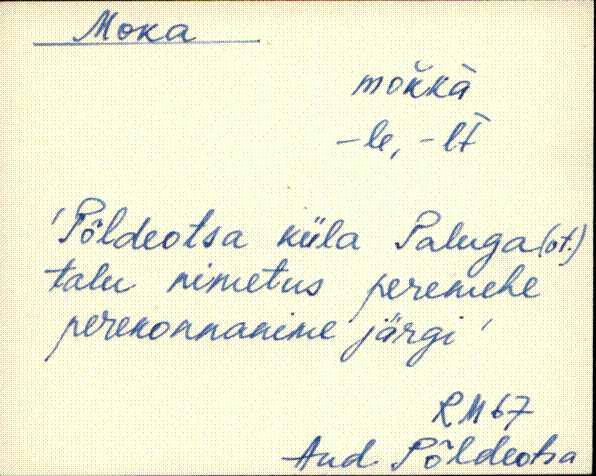 Moka
mok̆kà
-le, -lt
'Põldeotsa küla Paluga (ot.)
talu nimetus peremehe
perekonnanime järgi'
RM 67
Aud Põldeotsa